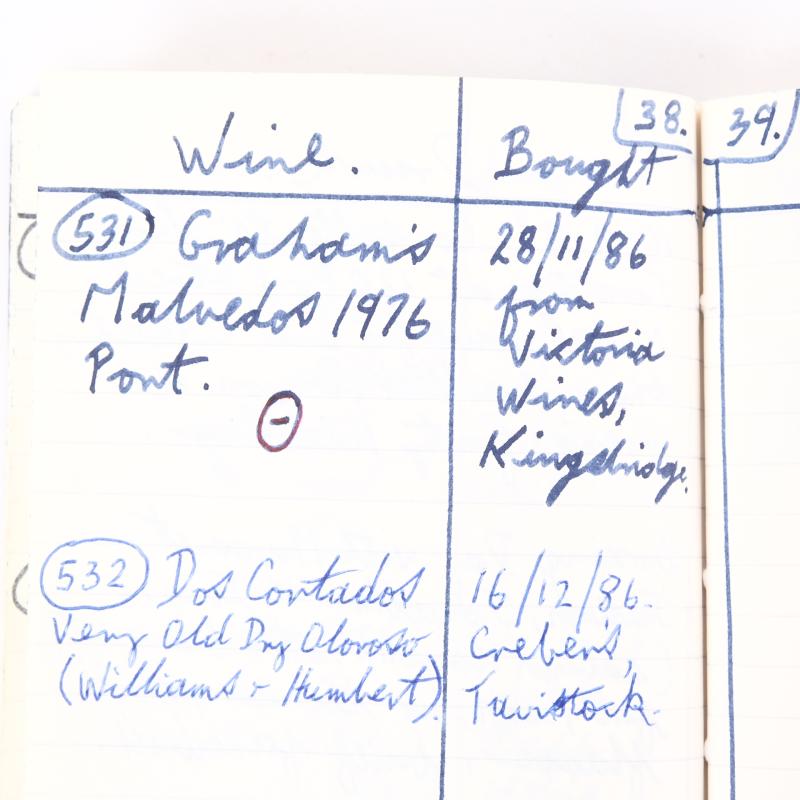 38.
39.
Wine.
Bought
531 Graham's
Malvedos 1976
Port.
28/11/86
from
Victoria
Wines,
Kingsbridge.
532 Dos Cortados
Very Old Dry Oloroso
(Williams & Humbert)
16/12/86.
Creber's,
Tavistock.